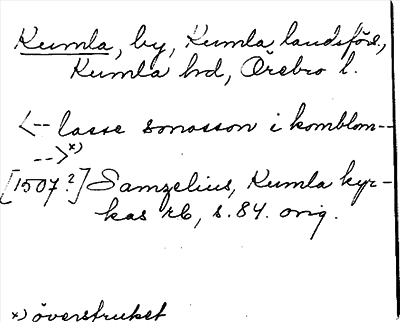 Kumla, by, Kumla landsförs.,
Kumla hd, Örebro l.
<-- lasse sonasson i komblom--
-->*)
[1507?] Samzelius, Kumla kyr-
kas rb, s. 84. orig.
*) överstruket